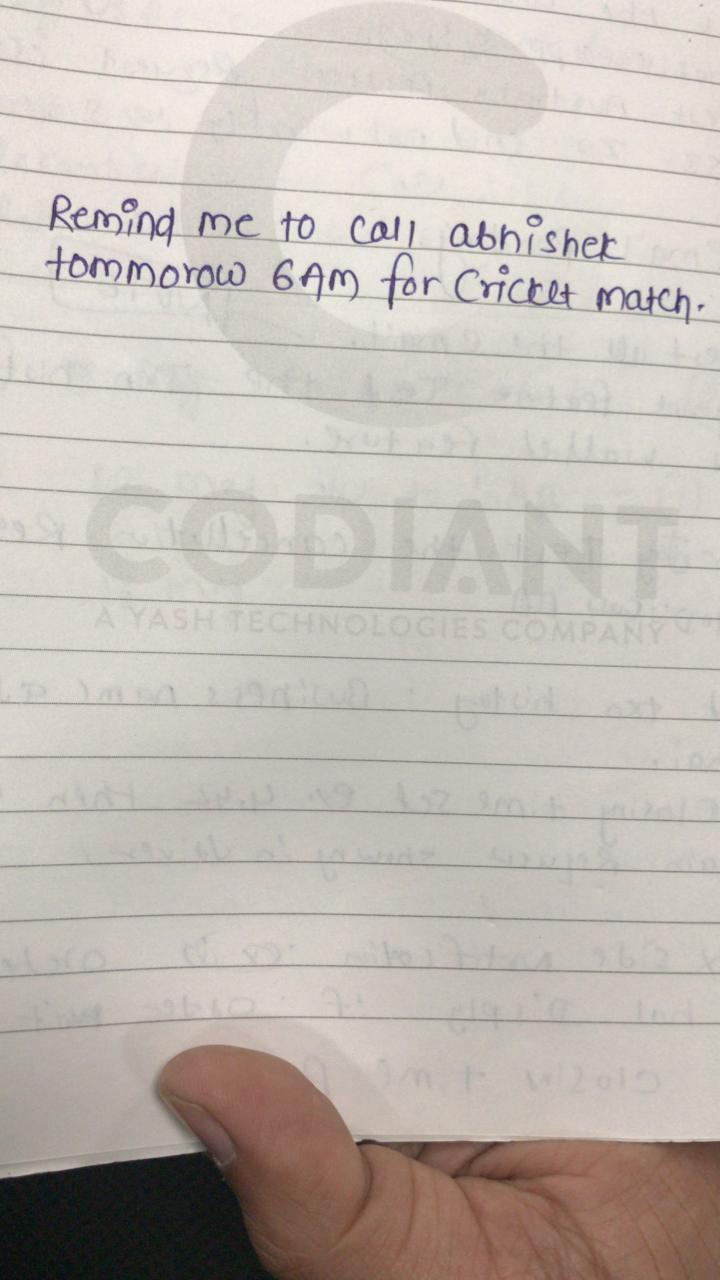 Remind me to call abhishek
tommorow 6AM for Cricket match.
CODIANT
A YASH TECHNOLOGIES COMPANY